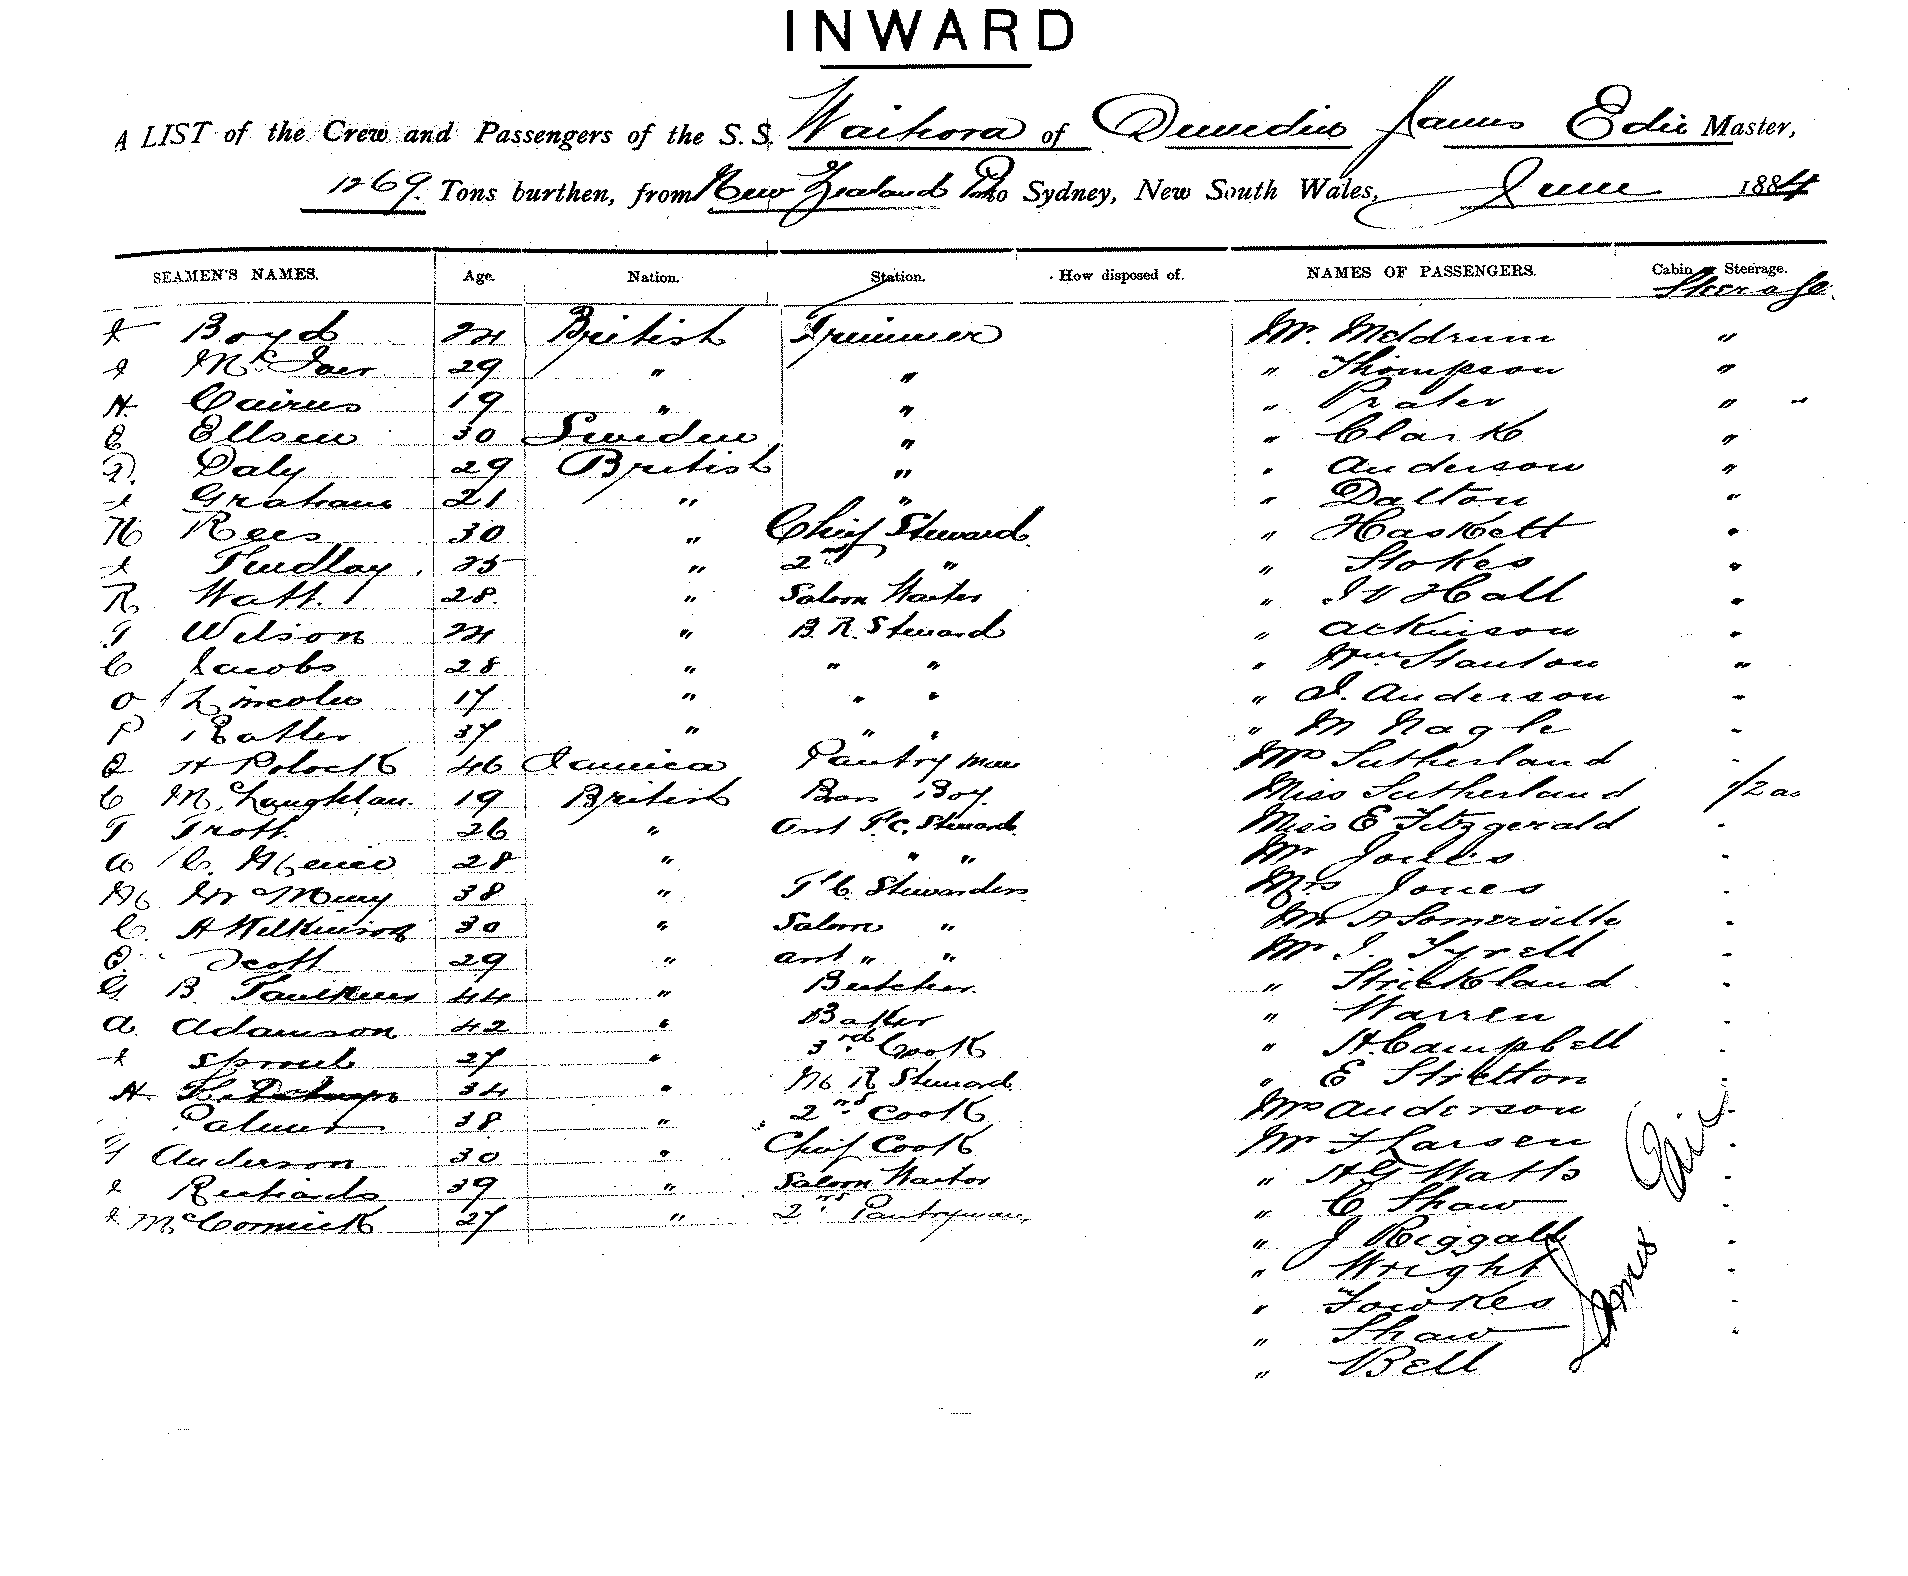 INWARD
A LIST of the Crew and Passengers of the S.S. Waihora of Dunedin James Edie Master,
1269. Tons burthen, from New Zealand to Sydney, New South Wales, June 1884
SEAMEN'S NAMES. Age. Nation. Station. How disposed of. NAMES OF PASSENGERS. Cabin or Steerage.
Steerage
Boyd 24 British Trimmer Mr. Meldrum "
29 " " " Thompson "
H. Cairns 19 " " " Prater " "
E Ellsen 30 Sweden " " Clark "
D. Daly 29 British " " Anderson "
Graham 21 " " " Dalton "
Rees 30 " Chief Steward " Haskett "
Findlay 25 " 2nd " " Stokes "
R Watt. 28 " Saloon Waiter " Hall "
T Wilson 24 " B. R. Steward " Ackinson "
C Jacobs 28 " " " " Wm Stanton "
O Lincoln 17 " " " " J. Anderson "
P Ratler 37 " " " " M Nagle
H Polock 46 Jamica Pantry man Mrs Sutherland "
C McLaughlan 19 British Bar Boy. Miss Sutherland 1/2
T Trott. 26 " Steward Miss E Fitzgerald "
28 " " " Mr Jones "
38 " Stewardess Mrs Jones "
C. A Wilkinson 30 " Saloon " Mr A Somerville "
Scott 29 " " " Mr J. Tyrell "
G B. Faulkner 44 " Butcher " Strickland "
A. Adamson 42 " Baker " Warren "
27 " 3rd Cook " H. Campbell "
H 34 " Steward " E Stretton "
Palmer 38 " 2nd Cook Mrs Anderson "
Anderson 30 " Chief Cook Mr F Larsen "
Richards 39 " Saloon Waiter " H G Watts "
McCormick 27 " 2nd Pantryman " C Shaw "
" J Riggall "
" Wright "
" Fowkes "
" Shaw "
" Bell
James Edie